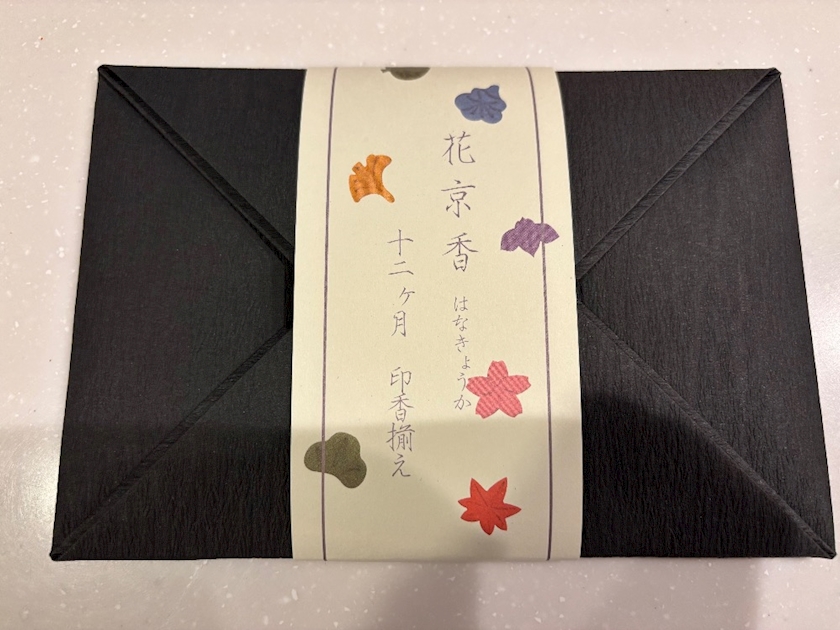 花京香
はなきょうか
十二ヶ月 印香揃え